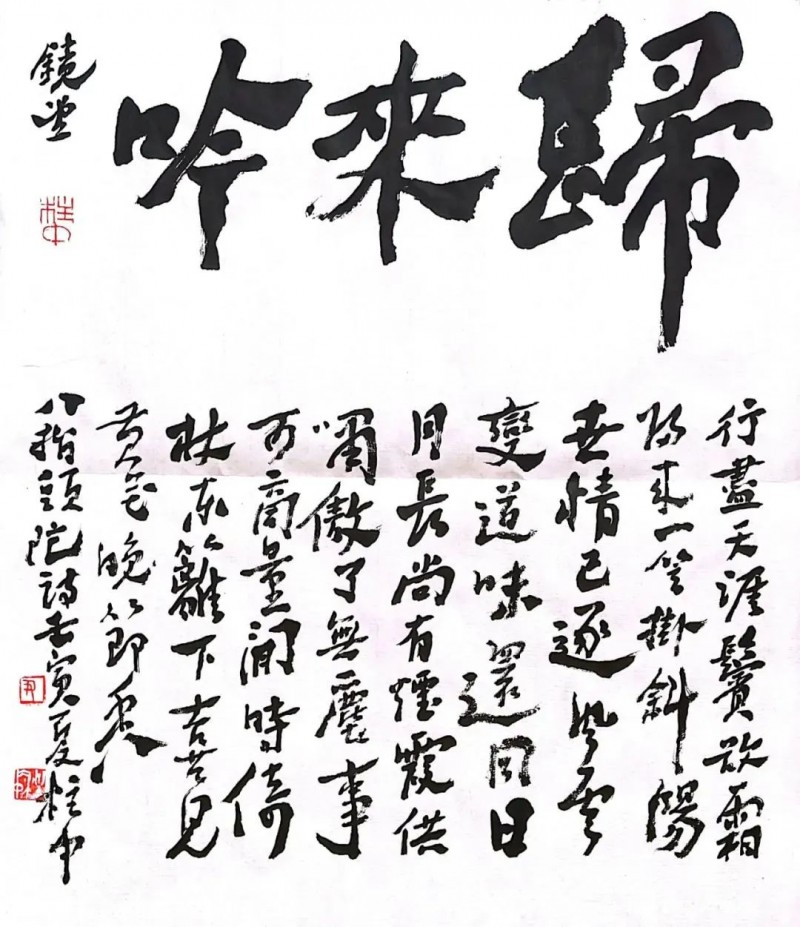 歸來吟
鏡堂
行盡天涯鬢欲霜
歸来一笠掛斜陽
世情已逐風雲
變道味還同日
月長尚有煙霞供
嘯傲了無塵事
可商量閒時倚
杖東籬下喜見
黃花晚節香
八指頭陀詩壬寅夏柱中
柱中